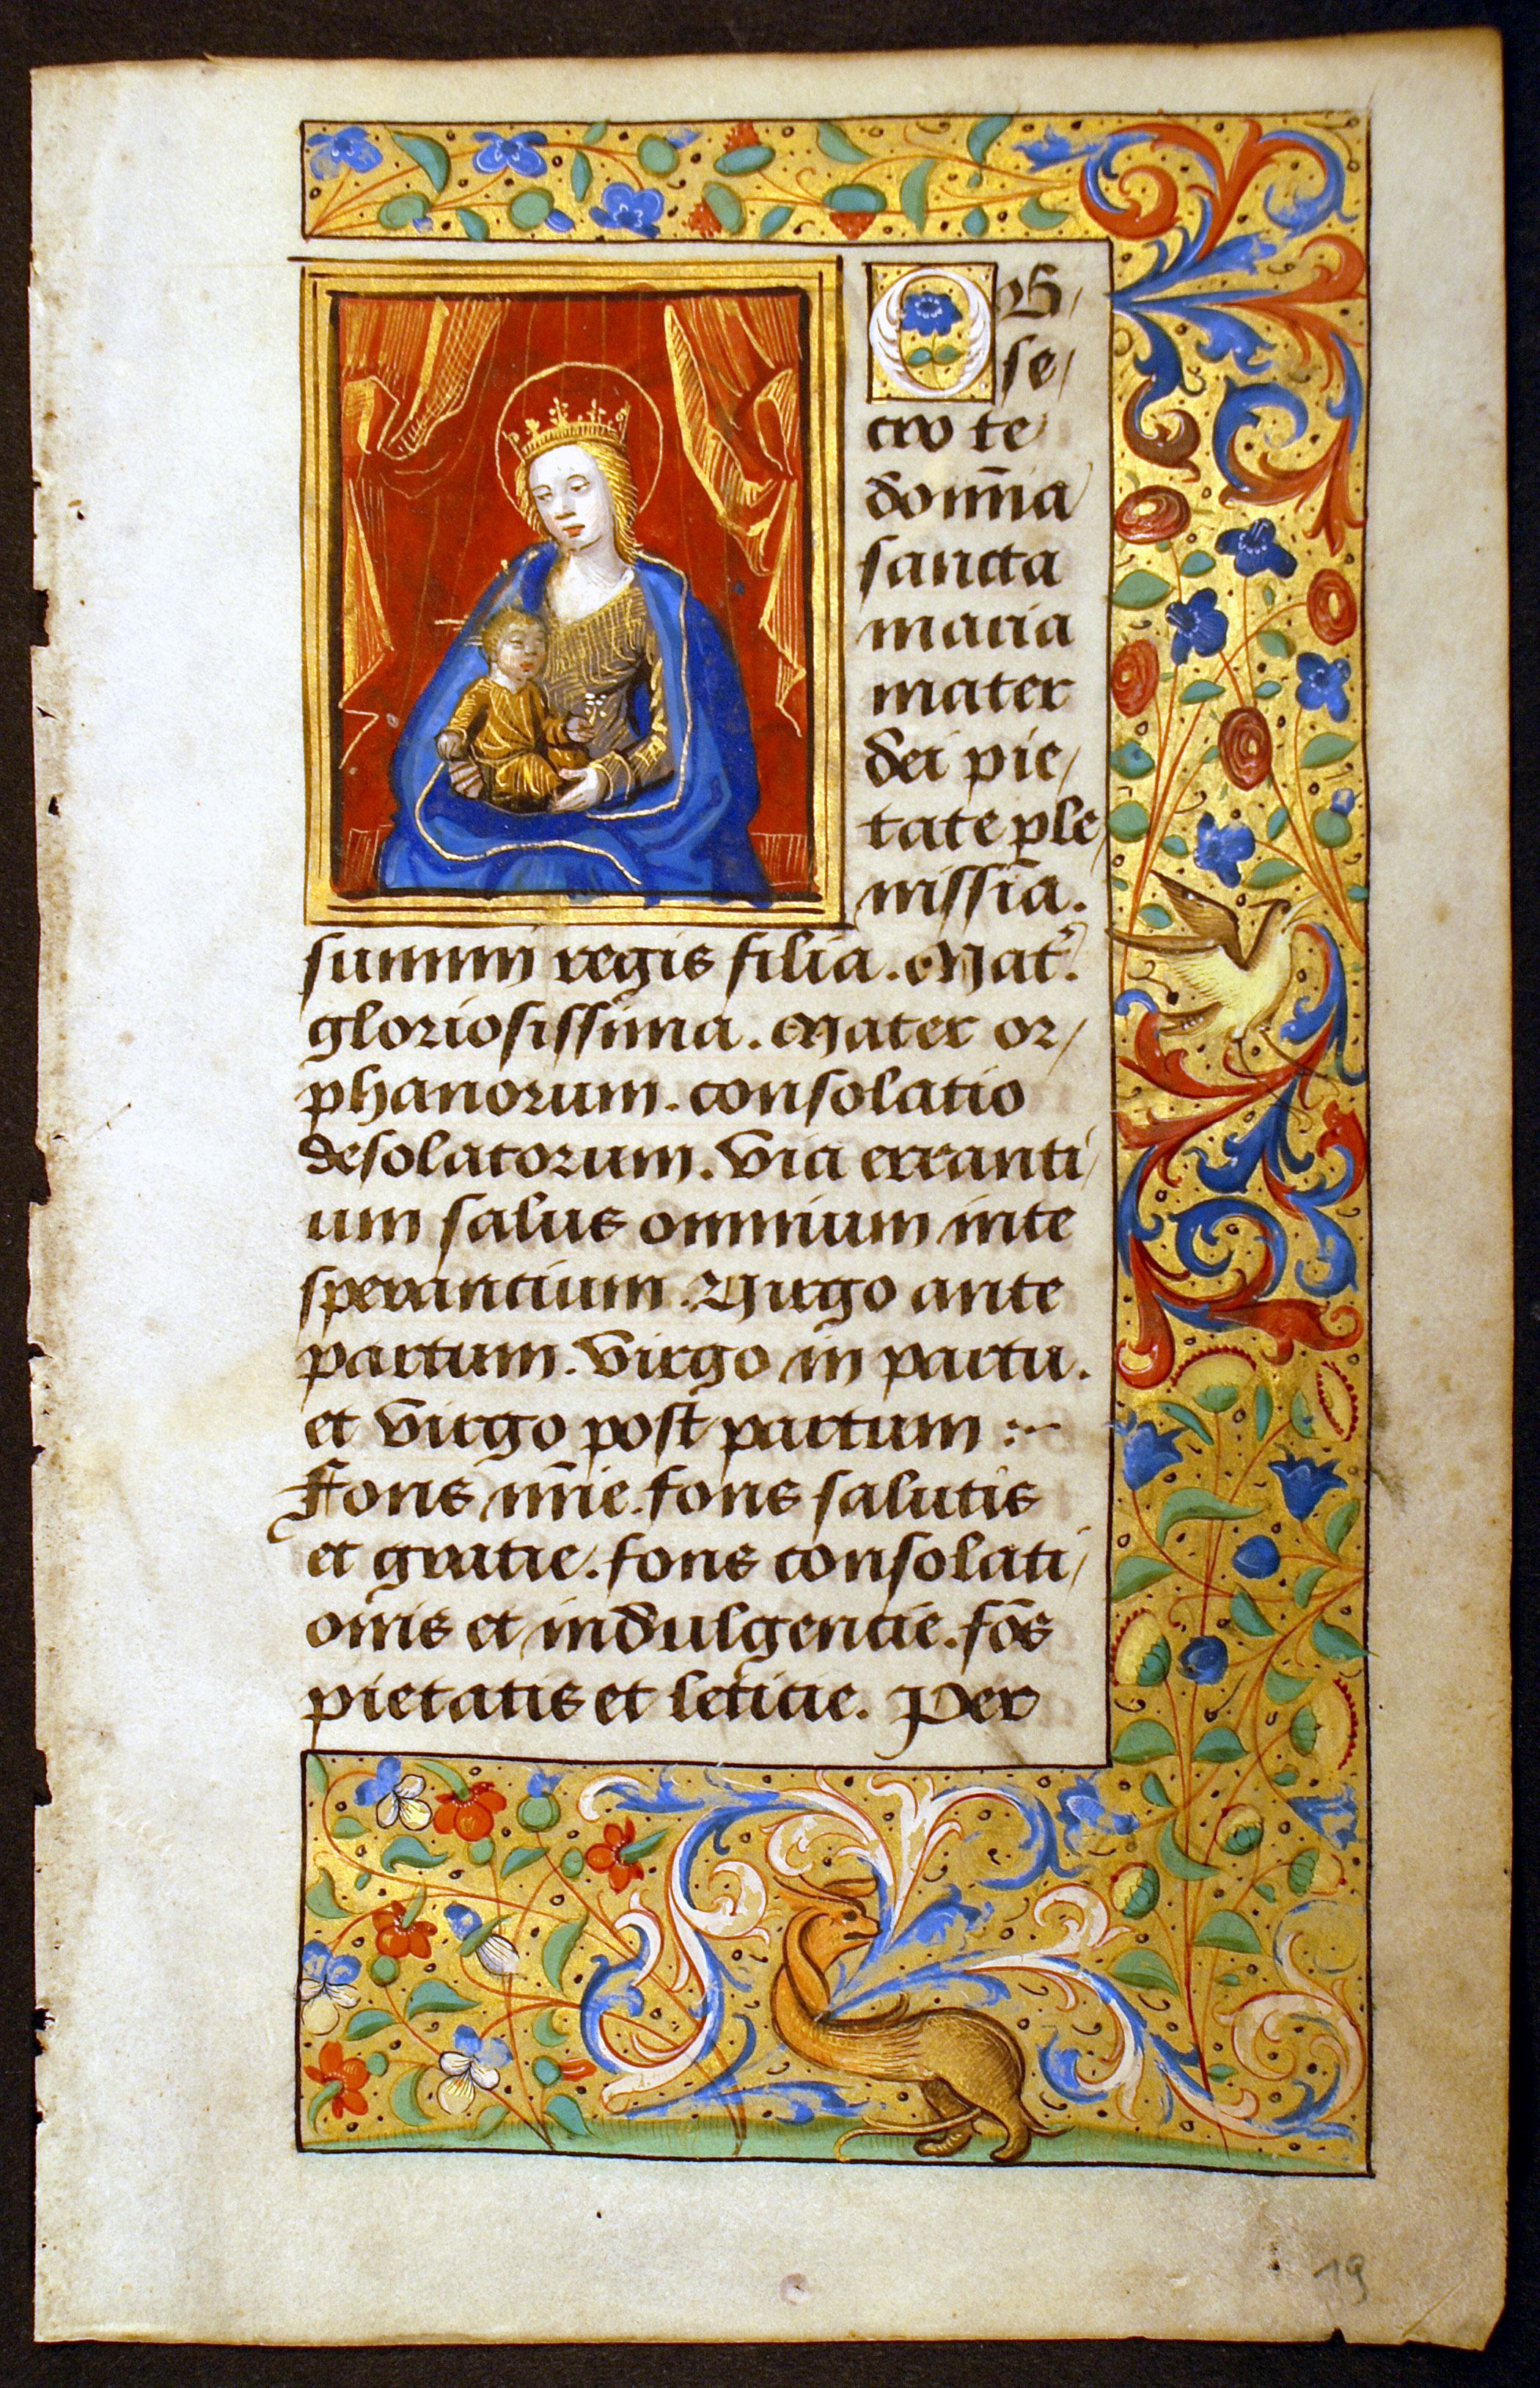 OB/
se/
cro te
domi̅a
sancta
maria
mater
dei pie/
tate ple/
nissi̅a.
summi regis filia. Mat᷑.
gloriosissima. Mater or/
phanorum. consolatio
desolatorum. Via erranti/
um salus omnium inte
sperancium. Virgo ante
partum. Virgo in partu.
et Virgo post partum :~
Fons mi̅e. fons salutis
et gratie. fons consolati/
onis et indulgencie. fo̅s
pietatis et leticie. Per
19